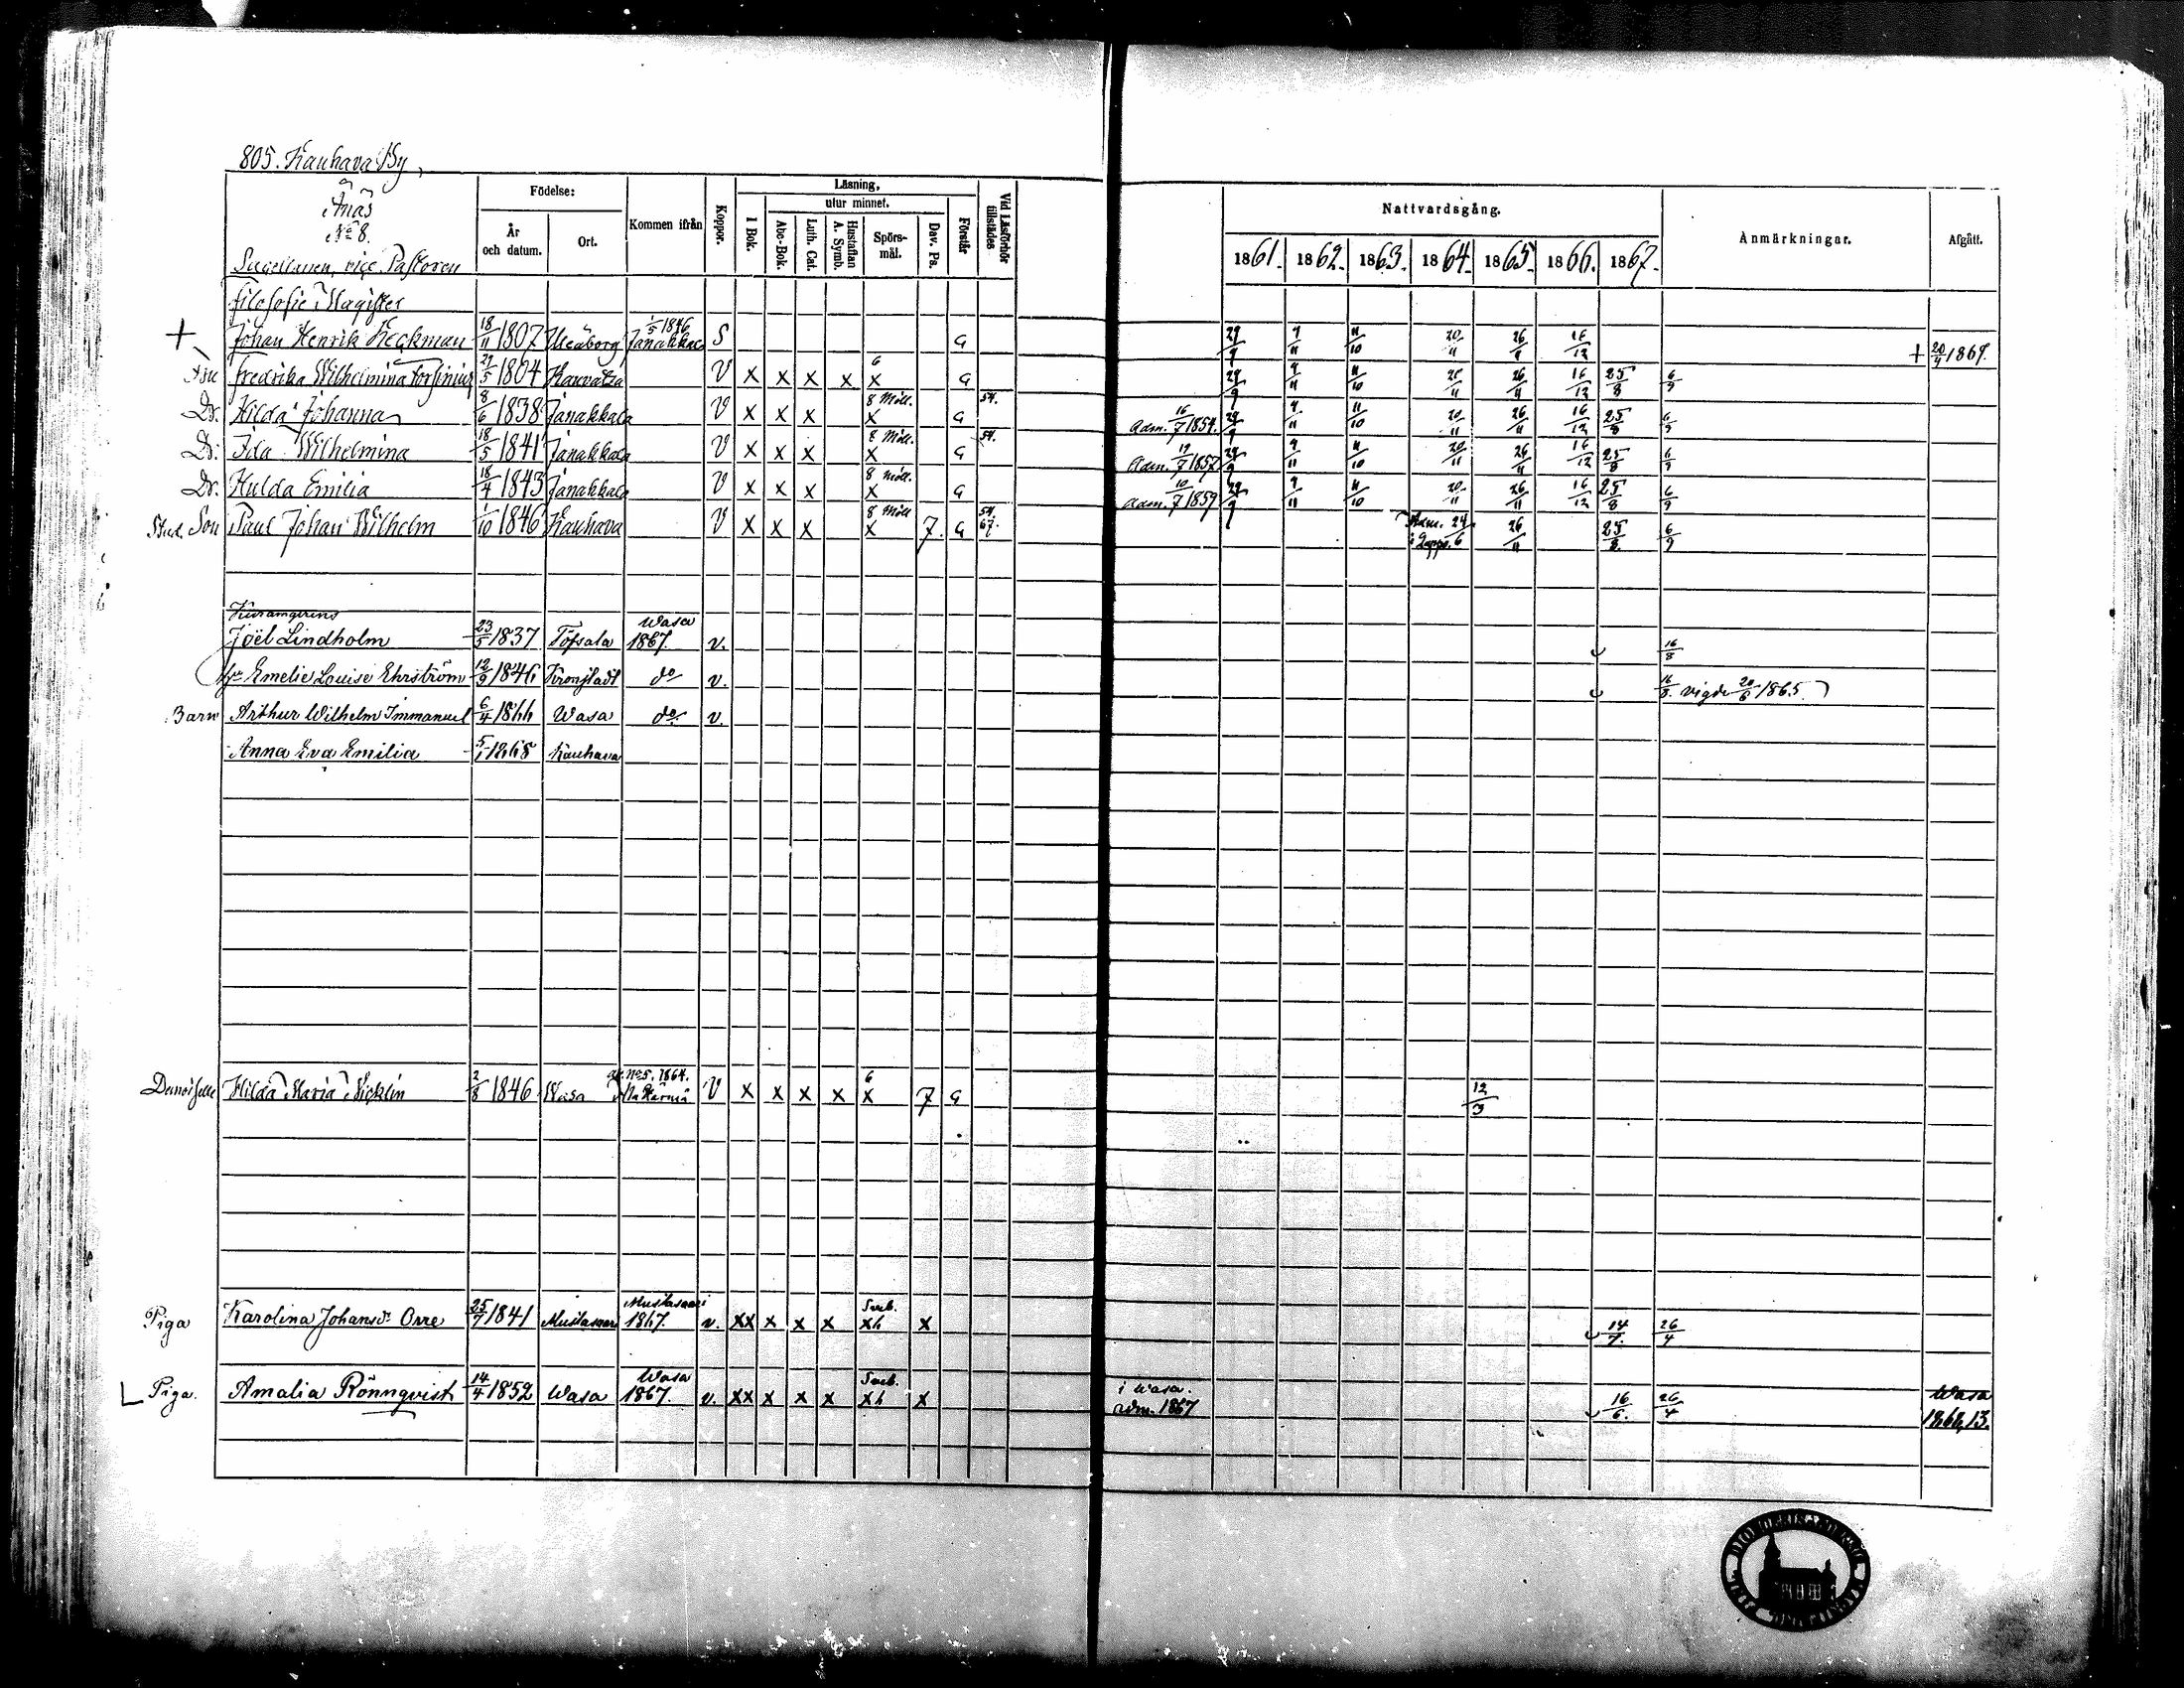 805. Kauhava By,
Ånäs
No 8.
Sacellanen, vice Pastoren
Födelse:
År och datum.
Ort.
Kommen ifrån
Koppor.
Läsning,
utur minnet.
I Bok.
Abc-Bok.
Luth. Cat.
Hustaflan A. Symb.
Spörs-mål.
Dav. Ps.
Förstår
Vid Läsförhör tillstädes
Nattvardsgång.
1861. 1862. 1863. 1864. 1865. 1866. 1867.
Anmärkningar.
Afgått.
filosofie Magister
+ Johan Henrik Heckman 18/11 1807 Uleåborg 1/5 1846 Janakkala S G 9/11 11/10 20/11 26/11 16/12 + 1867.
Fredrika Wilhelmina Forsinius 29/5 1804 V X X X X 6 X G 9/11 11/10 20/11 26/11 16/12 25/8 6/9
Dr. Hilda Johanna 8/6 1838 Janakkala V X X X 8 Moll. X G 54. Adm. 16/7 1854. 9/11 11/10 20/11 26/11 16/12 25/8 6/9
Dr. Ida Wilhelmina 18/5 1841 Janakkala V X X X 8 Moll. X G 54. Adm. 19/7 1857 9/11 11/10 20/11 26/11 16/12 25/8 6/9
Dr. Hulda Emilia 18/4 1843 Janakkala V X X X 8 Moll. X G Adm. 10/7 1859 9/11 11/10 20/11 26/11 16/12 25/8 6/9
Stud. Son Paul Johan Wilhelm 1/10 1846 Kauhava V X X X 8 Moll X 7. G 54. 67. Adm. 24/6 i Lappo. 26/11 25/8. 6/9
Joël Lindholm 23/5 1837 Töfsala Wasa 1867. v. 16/8
Emelie Louise Ehrström 12/9 1846 Kronstadt do v. 16/8. vigde 20/6 1865.
Barn Arthur Wilhelm Immanuel 6/4 1866 Wasa do v.
Anna Eva Emilia 5/1 1868 Kauhava
Demoiselle Hilda Maria Nicklin 2/8 1846 Wasa No 5. 1864. V X X X X 6 X 7 G 12/3
Piga Karolina Johansdr Orre 25/7 1841 Mustasaari Mustasaari 1867. v. XX X X X Sveb. Xh X 14/7. 26/4
Piga. Amalia Rönnqvist 14/4 1852 Wasa Wasa 1867. v. XX X X X Sveb. Xh X i Wasa. adm. 1867 16/6. 26/4 Wasa 1868,13.